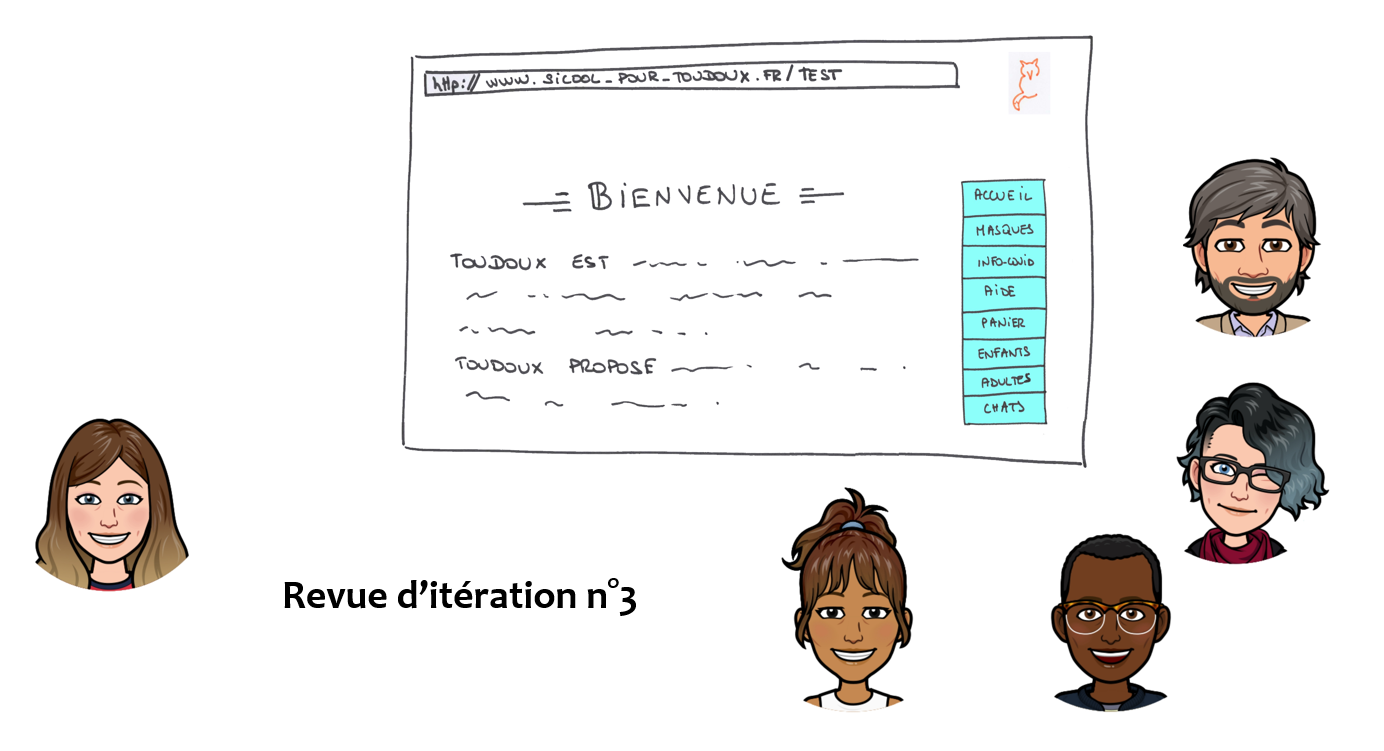 http:// www.sicool_pour_toudoux.fr/test
BiENVENUE
TOUDOUX EST
TOUDOUX PROPOSE
ACCUEiL
MASQUES
iNFO-COViD
AiDE
PANiER
ENFANTS
ADULTES
CHATS
Revue d’itération n°3